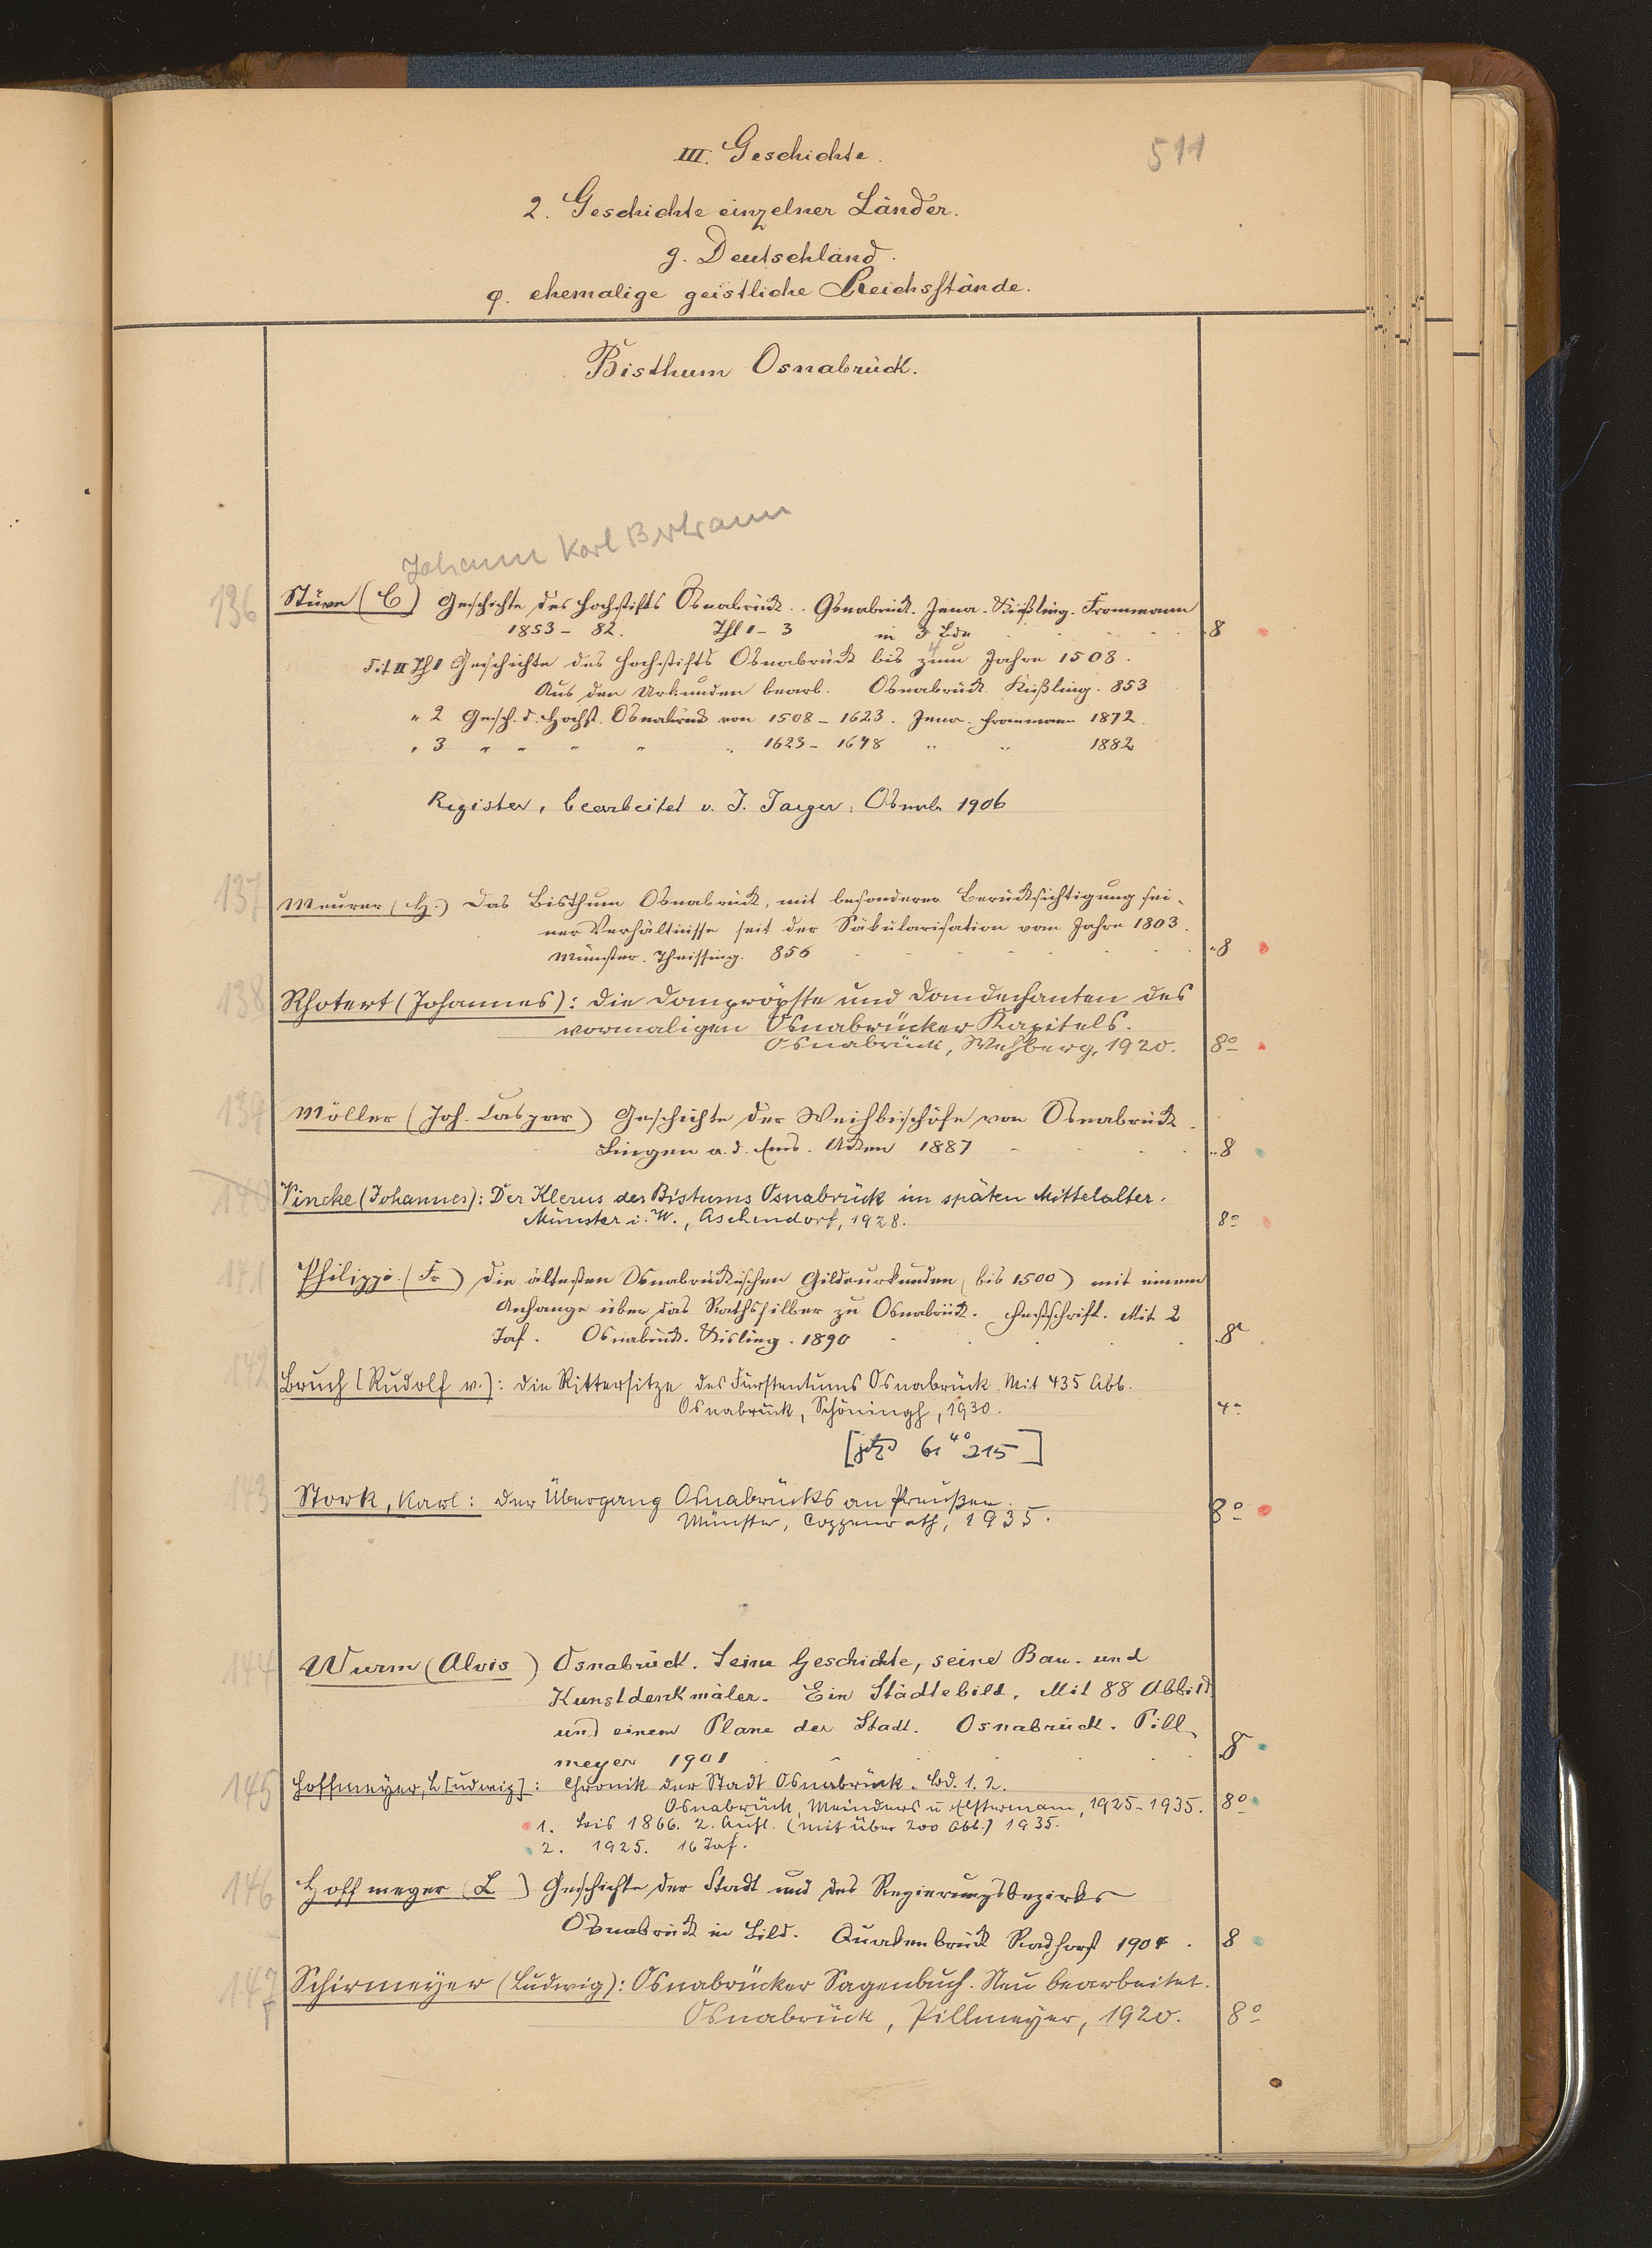 III. Geschichte.
511
2. Geschichte einzelner Länder.
g. Deutschland.
φ. ehemalige geistliche Reichsstände.
Bisthum Osnabrück.
Johann Karl Bertram
136 Stüve (C) Geschichte des Hochstifts Osnabrück. Osnabrück. Jena. Kießling. Frommann
1853-82. Thl 1-3 in 3 Bdn 8
4
Tit II Thl 1 Geschichte des Hochstifts Osnabrück bis zum Jahre 1508.
Aus den Urkunden bearb. Osnabrück. Kießling. 853
" 2 Gesch. d. Hochst. Osnabrück von 1508-1623. Jena. Frommann 1872.
" 3 " " " " " 1623-1648 " " 1882
Register, bearbeitet v. J. Jaeger, Osnab. 1906
137 Meurer (H.) Das Bisthum Osnabrück, mit besonderer Berücksichtigung sei-
ner Verhältnisse seit der Säkularisation vom Jahre 1803.
Münster. Theissing. 856 8
138 Rhotert (Johannes): Die Dompröpste und Domdechanten des
vormaligen Osnabrücker Kapitels.
Osnabrück, Wehberg, 1920. 8°
139 Möller (Joh. Caspar) Geschichte der Weihbischöfe von Osnabrück.
Lingen a. d. Ems. Acken 1887 8
140 Vincke (Johannes): Der Klerus des Bistums Osnabrück im späten Mittelalter.
Münster i. W., Aschendorf, 1928. 8°
141 Philippi (Fr) Die ältesten Osnabrückischen Gildeurkunden (bis 1500) mit einem
Anhange über das Rathssilber zu Osnabrück. Festschrift. Mit 2
Taf. Osnabrück. Kisling. 1890 8
142 Bruch [Rudolf v.]: Die Rittersitze des Fürstentums Osnabrück. Mit 435 Abb.
Osnabrück, Schöningh, 1930. 4°
[jetzt 61 4° 215]
143 Stork, Karl: Der Übergang Osnabrücks an Preußen.
Münster, Coppenrath, 1935. 8°
144 Wurm (Alois) Osnabrück. Seine Geschichte, seine Bau- und
Kunstdenkmäler. Ein Städtebild. Mit 88 Abbild.
und einem Plane der Stadt. Osnabrück. Pill-
meyer 1901 8
145 Hoffmeyer, L[udwig]: Chronik der Stadt Osnabrück. Bd. 1. 2.
Osnabrück, Meinders u Elstermann, 1925-1935. 8°
1. bis 1866. 2. Aufl. (Mit über 200 Abb.) 1935.
2. 1925. 16 Taf.
146 Hoffmeyer (L) Geschichte der Stadt und des Regierungsbezirks
Osnabrück in Bild. Quakenbrück Radhorst 1904. 8
147 Schirmeyer (Ludwig): Osnabrücker Sagenbuch. Neu bearbeitet.
Osnabrück, Pillmeyer, 1920. 8°